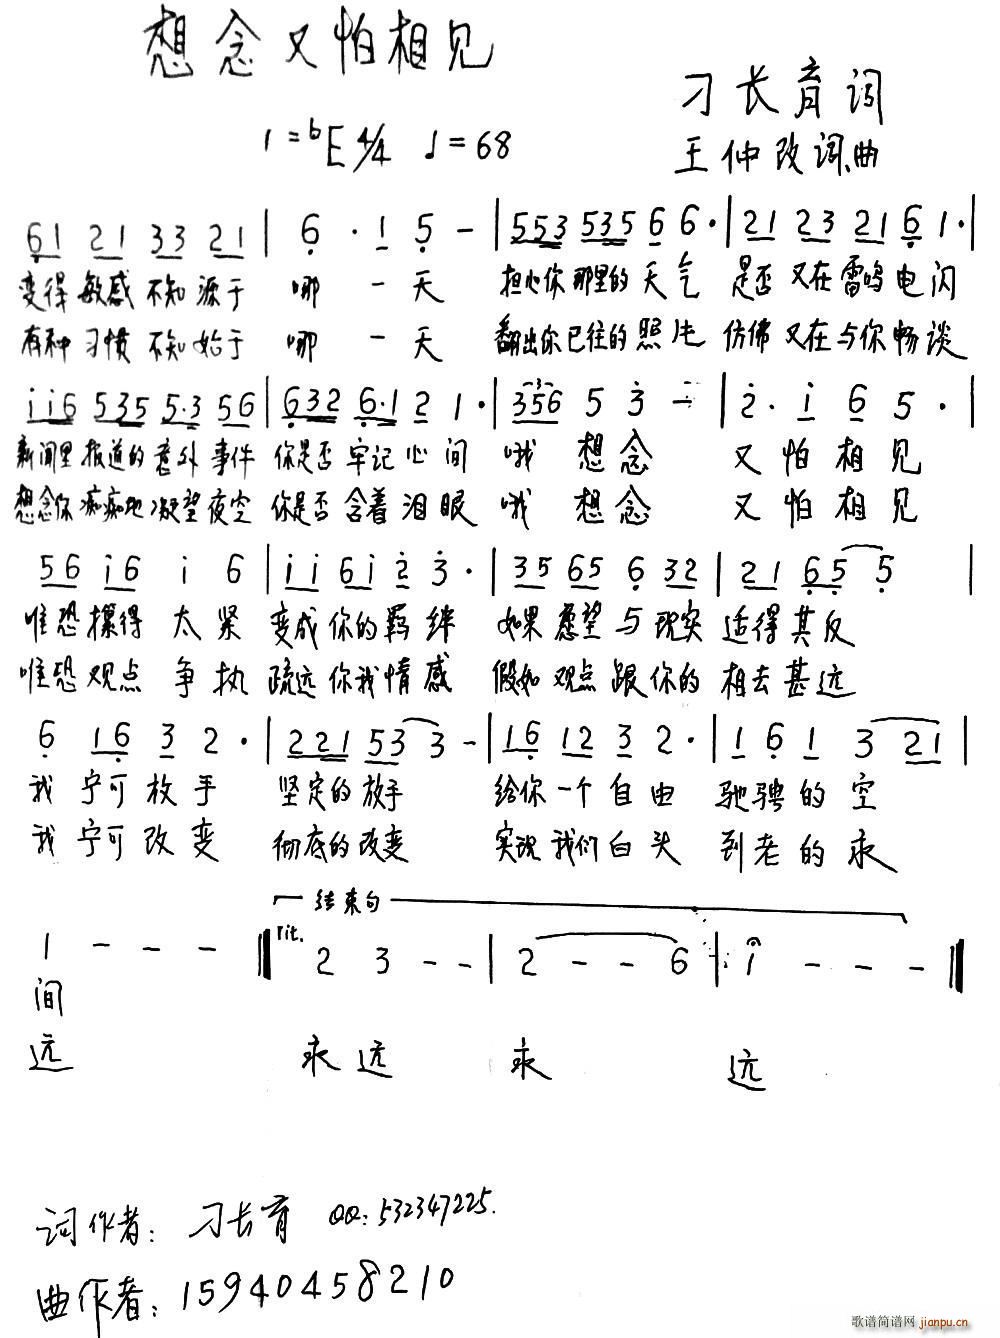 想念又怕相见
刁长育词
1=bE 4/4 ♩=68
王仲改词、曲
6̣1 21 33 21 | 6̣ · 1 5̣ - | 553 535 6 6· | 21 23 21 6̣ 1· |
变得敏感不知源于 哪一天 担心你那里的天气 是否又在雷鸣电闪
有种习惯不知始于 哪一天 翻出你已往的照片 仿佛又在与你畅谈
i̇i̇6 535 5·3 56 | 6̣32 6̣·1 2 1· | 356 5 3̇ - | 2̇· i̇ 6 5· |
新闻里报道的意外事件 你是否牢记心间 哦 想念 又怕相见
想念你痴痴地凝望夜空 你是否含着泪眼 哦 想念 又怕相见
56 i̇6 i̇ 6 | i̇i̇ 6i̇ 2̇ 3̇· | 35 65 6̣ 32 | 21 6̣5̣ 5̣ |
唯恐攥得太紧 变成你的羁绊 如果愿望与现实 适得其反
唯恐观点争执 疏远你我情感 假如观点跟你的 相去甚远
6̣ 16̣ 3 2· | 2 21 53 3 - | 16̣ 12 3 2· | 1 6̣ 1 3 21 |
我宁可放手 坚定的放手 给你一个自由 驰骋的空
我宁可改变 彻底的改变 实现我们白头 到老的永
结束句
1 - - - ‖ rit. 2 3 - - | 2 - - 6 | i̇ - - - ‖
间
远 永远 永 远
词作者：刁长育 QQ：532347225.
曲作者：15940458210
歌谱简谱网 jianpu.cn